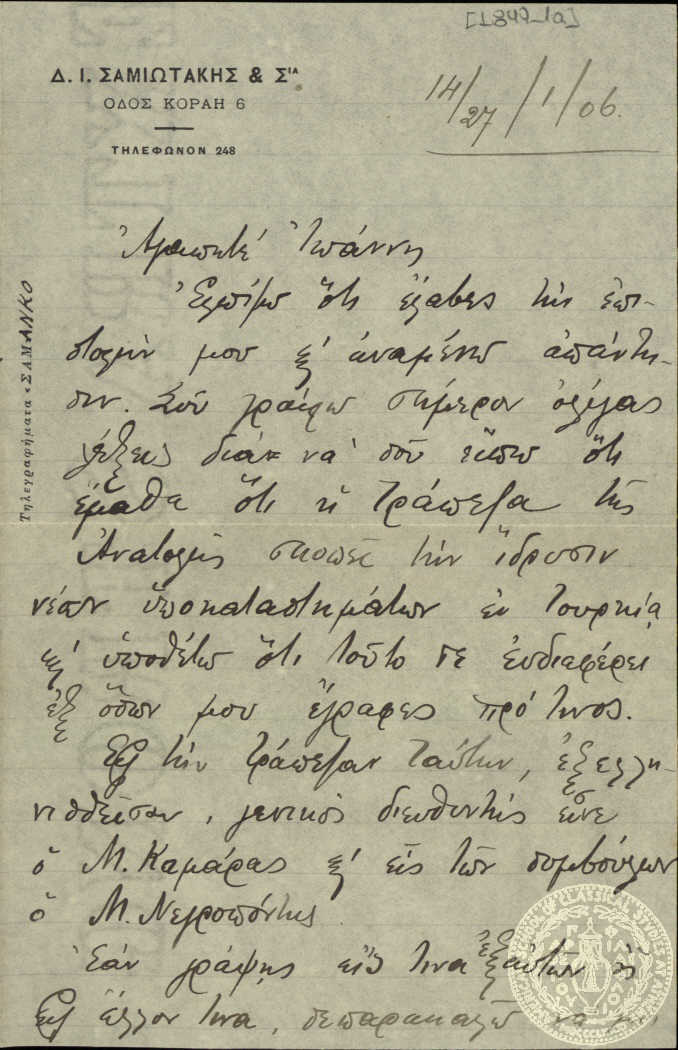 [1849_1a]
Δ. Ι. ΣΑΜΙΩΤΑΚΗΣ & Σιᾳ
ΟΔΟΣ ΚΟΡΑΗ 6
ΤΗΛΕΦΩΝΟΝ 248
14/27 / 1 / 06.
Τηλεγραφήματα «ΣΑΜΑΝΚΟ
Ἀγαπητέ Ἰωάννη
Ἐλπίζω ὅτι ἔλαβες τὴν ἐπι-
στολήν μου κ' ἀναμένω ἀπάντη-
σιν. Σοῦ γράφω σήμερον ὀλίγας
λέξεις διὰ νὰ σοῦ εἴπω ὅτι
ἔμαθα ὅτι ἡ Τράπεζα τῆς
Ἀνατολῆς σκοπεῖ τὴν ἵδρυσιν
νέων ὑποκαταστημάτων ἐν Τουρκίᾳ
κ' ὑποθέτω ὅτι τοῦτο σὲ ἐνδιαφέρει
ἐξ ὅσων μου ἔγραφες πρό τινος.
Εἰς τὴν Τράπεζαν ταύτην, ἐξελλη-
νισθεῖσαν, γενικὸς διευθυντής εἶνε
ὁ Μ. Καμάρας κ' εἷς τῶν συμβούλων
ὁ Μ. Νεγροπόντης
Ἐάν γράψῃς εἴς τινα ἐξ αὐτῶν ἢ
εἰς ἄλλον τινα, σὲ παρακαλῶ νὰ